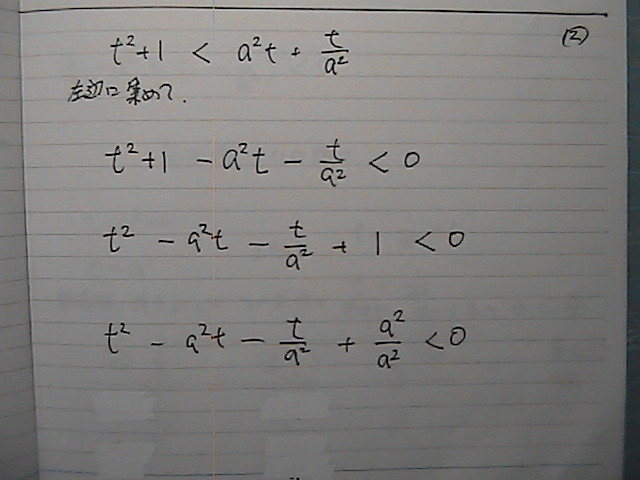 (2)
t²+1 < a²t + t/a²
左辺に集めて.
t²+1 - a²t - t/a² < 0
t² - a²t - t/a² + 1 < 0
t² - a²t - t/a² + a²/a² < 0